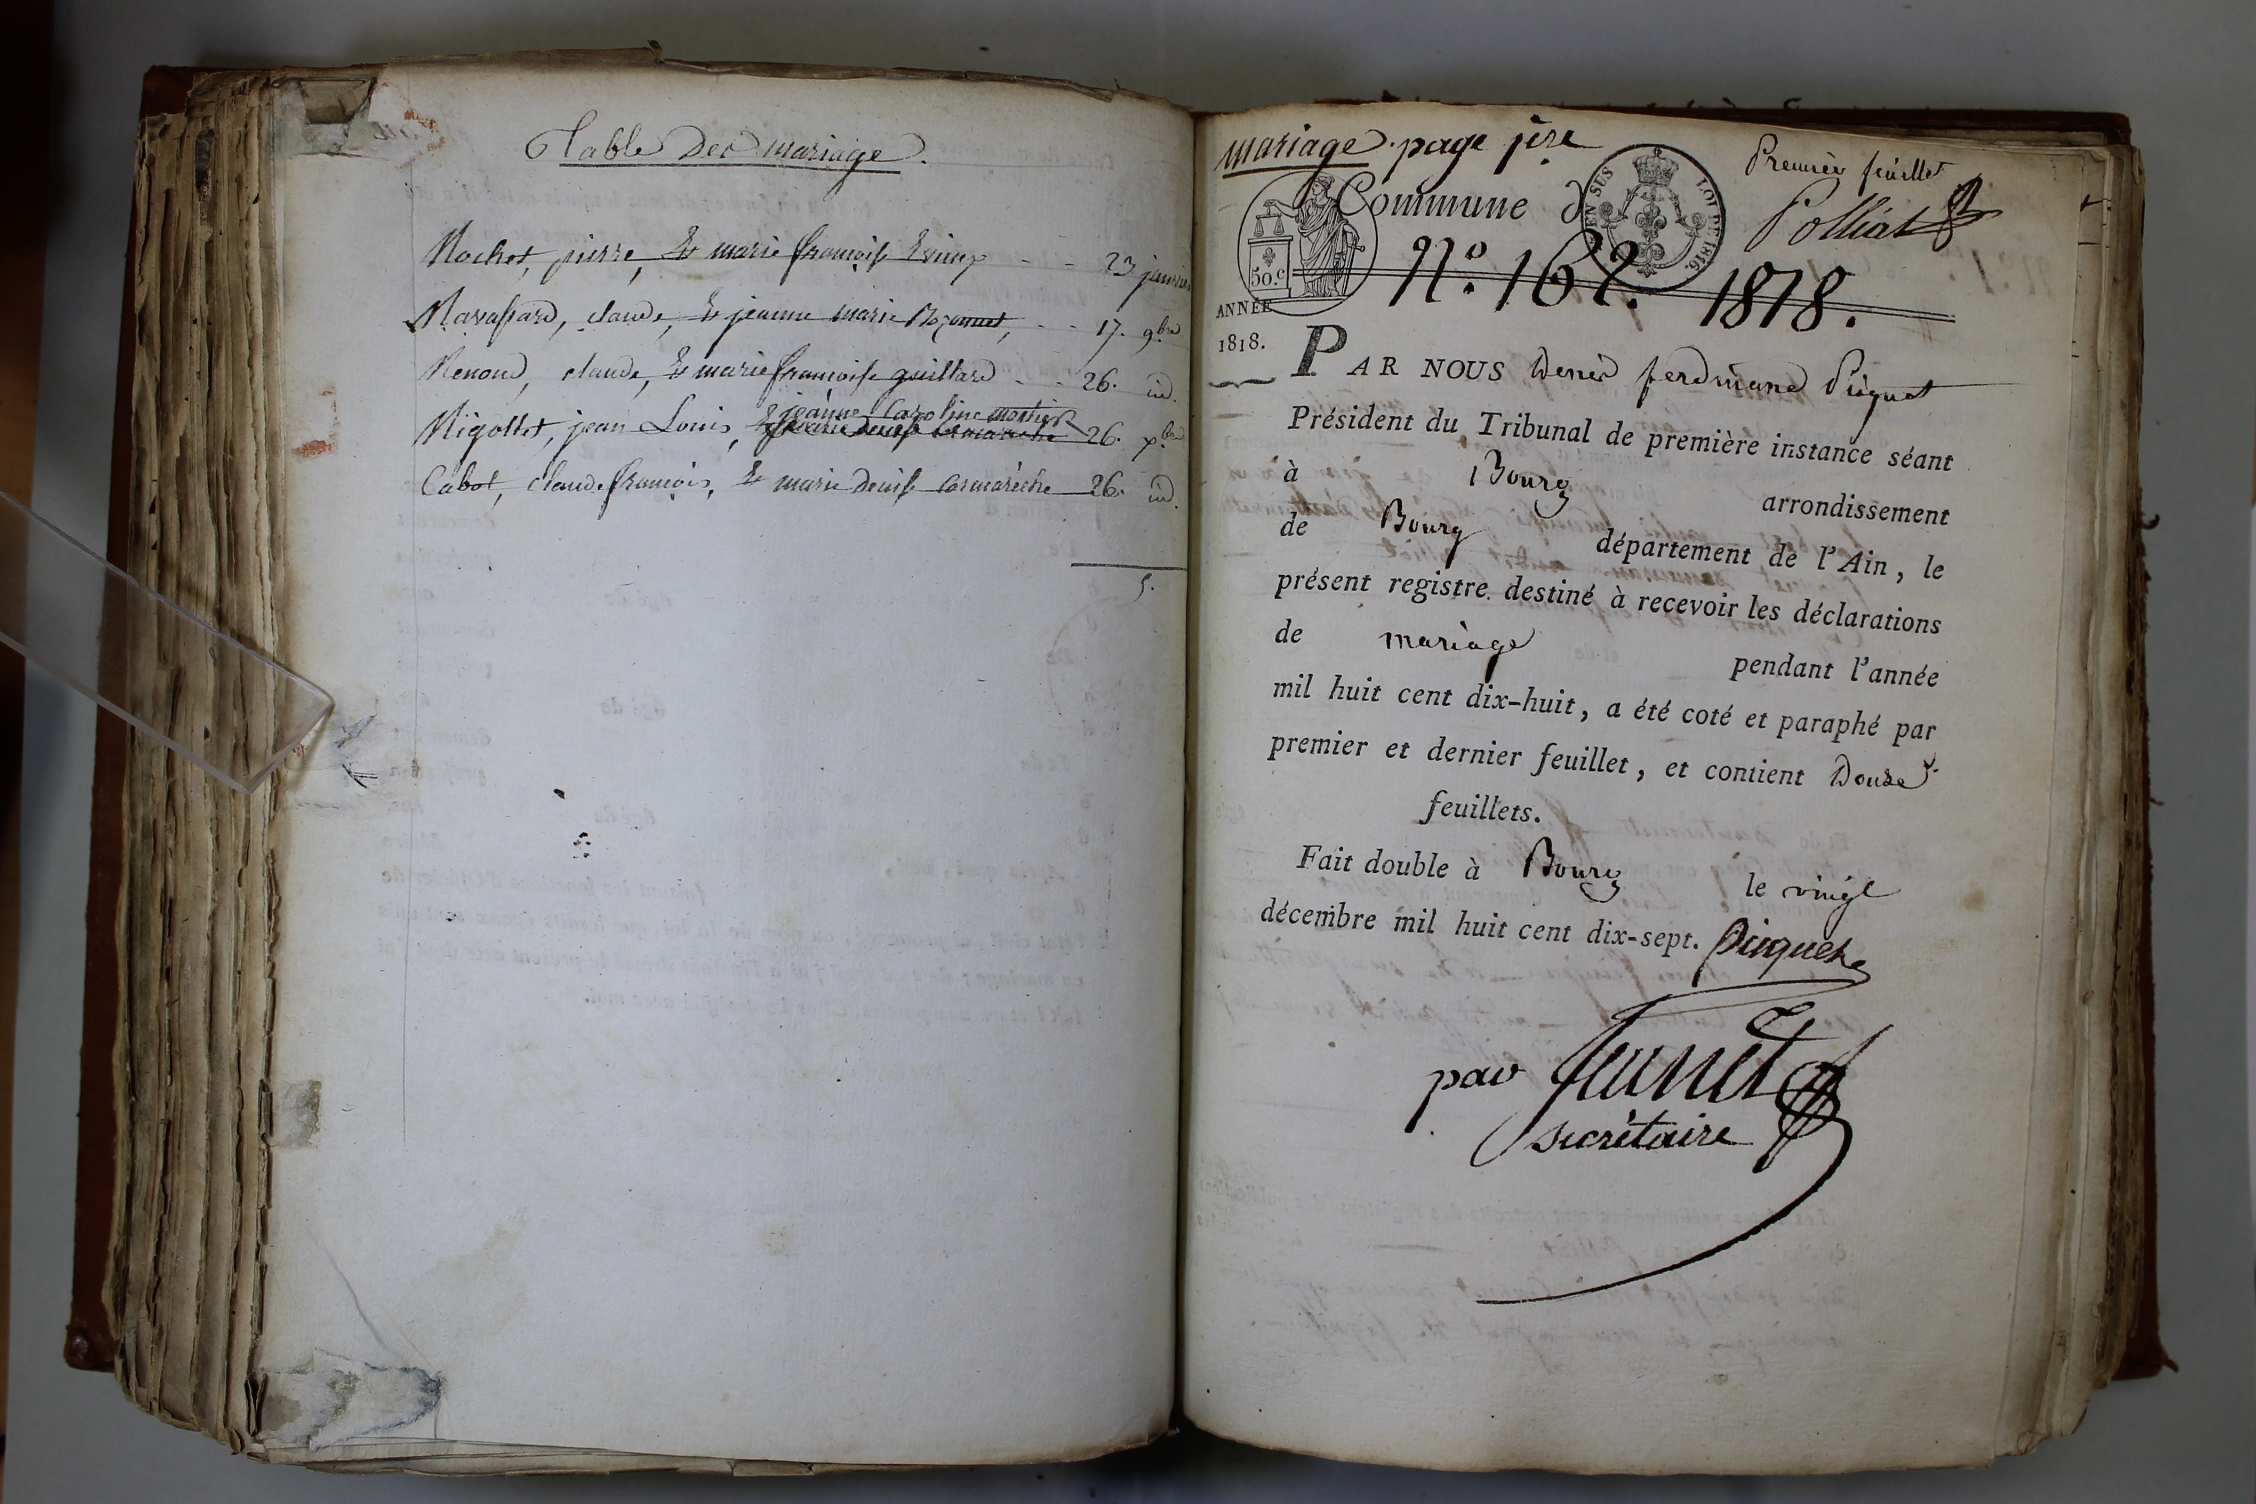 Table des mariage.
Rochet, pierre, & marie françoise - - 23 janvier
Ravassard, claude, & jeanne marie Bozonnet, - - 17. 9.bre
Renoud, claude, & marie françoise guillard - - 26. id.
jeanne Caroline
Rigollet, jean Louis, & marie denise cormareche 26. x.bre
Cabot, claude françois, & marie denise cormarêche 26. id.
5.
mariage. page 1ère
Premier feuillet
Commune d
EN SUS LOI DE 1816.
Polliat
50.c
N.o 162. 1818.
ANNÉE
1818.
PAR NOUS denis ferdinand Piquet
Président du Tribunal de première instance séant
à Bourg arrondissement
de Bourg département de l'Ain, le
présent registre destiné à recevoir les déclarations
de mariage pendant l'année
mil huit cent dix-huit, a été coté et paraphé par
premier et dernier feuillet, et contient Douze
feuillets.
Fait double à Bourg le vingt
décembre mil huit cent dix-sept. Piquet
par
secrétaire